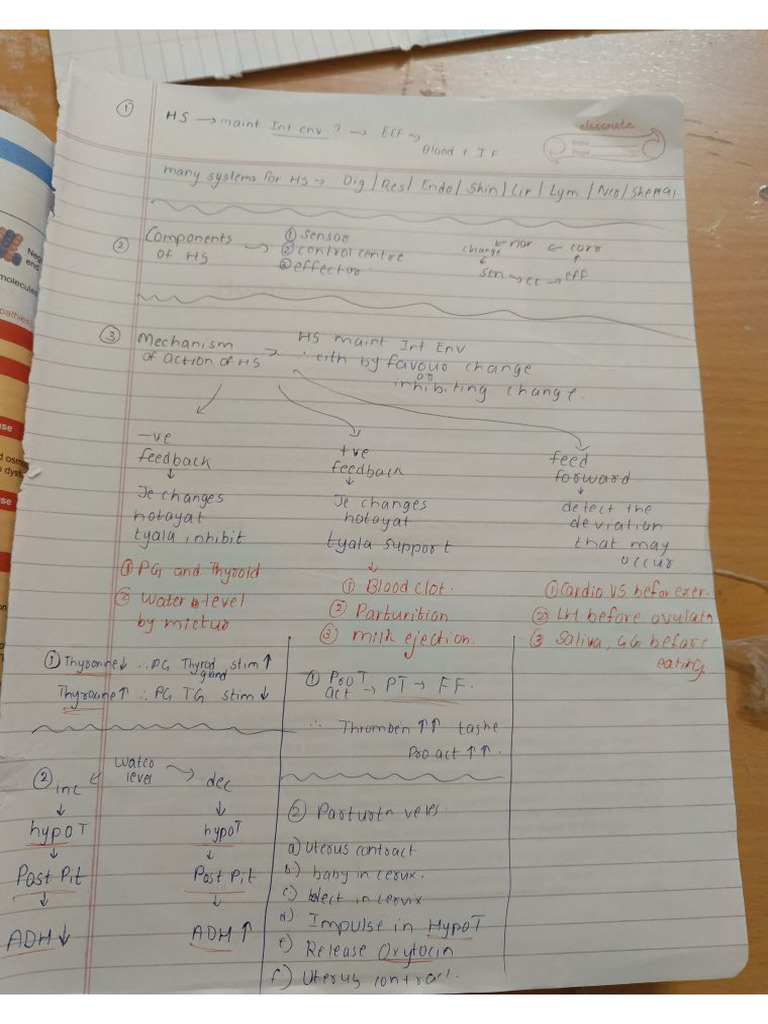 ① HS → maint Int env? → ECF →
Blood + IF
classmate
Date
Page
many systems for HS → Dig / Res / Endo / Skin / Cir / Lym /
② Components of HS →
① Sensor
② control centre
③ effector
change ← nor ← corr
↓ ↑
sen → cc → eff
③ Mechanism of action of HS →
HS maint Int Env
∴ eith by favour change
or
inhibiting change.
-ve
feedback
↓
Je changes
hotayat
tyala inhibit
① PG and Thyroid
② Water level
by mictur
+ve
feedback
↓
Je changes
hotayat
tyala support
↓
① Blood clot.
② Parturition
③ milk ejection.
feed
forward
↓
detect the
deviation
that may
occur
① Cardio VS befor exer.
② LH before ovulatn
③ Saliva, GG before
eating.
① Thyroxine ↓ ∴ PG Thyroid gland stim ↑
Thyroxine ↑ ∴ PG TG stim ↓
② Water level
inc
↓
hypoT
↓
Post Pit
↓
ADH ↓
dec
↓
hypoT
↓
Post Pit
↓
ADH ↑
① ProT act → PT → FF.
∴ Thromben ↑↑ tashe
Pro act ↑↑.
② Parturtn veles.
a) Uterus contract
b) baby in cervix.
c) in cervix
d) Impulse in HypoT
e) Release Oxytocin
f) Uterus contract.
Neg
end
molecules
pathies